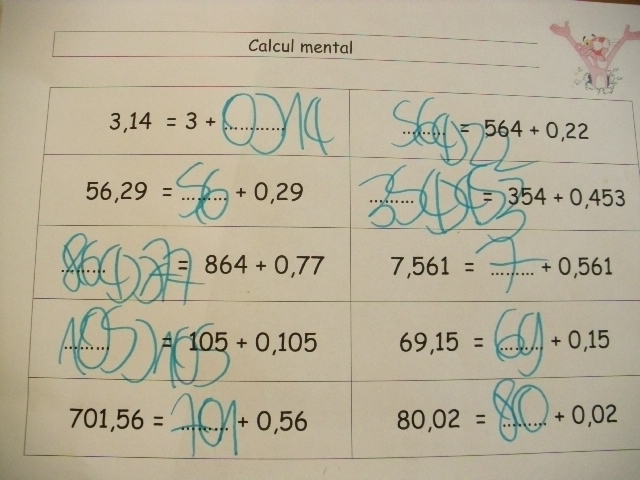 Calcul mental
3,14 = 3 + 0,14
564,22 = 564 + 0,22
56,29 = 56 + 0,29
354,453 = 354 + 0,453
864,77 = 864 + 0,77
7,561 = 7 + 0,561
105,105 = 105 + 0,105
69,15 = 69 + 0,15
701,56 = 701 + 0,56
80,02 = 80 + 0,02